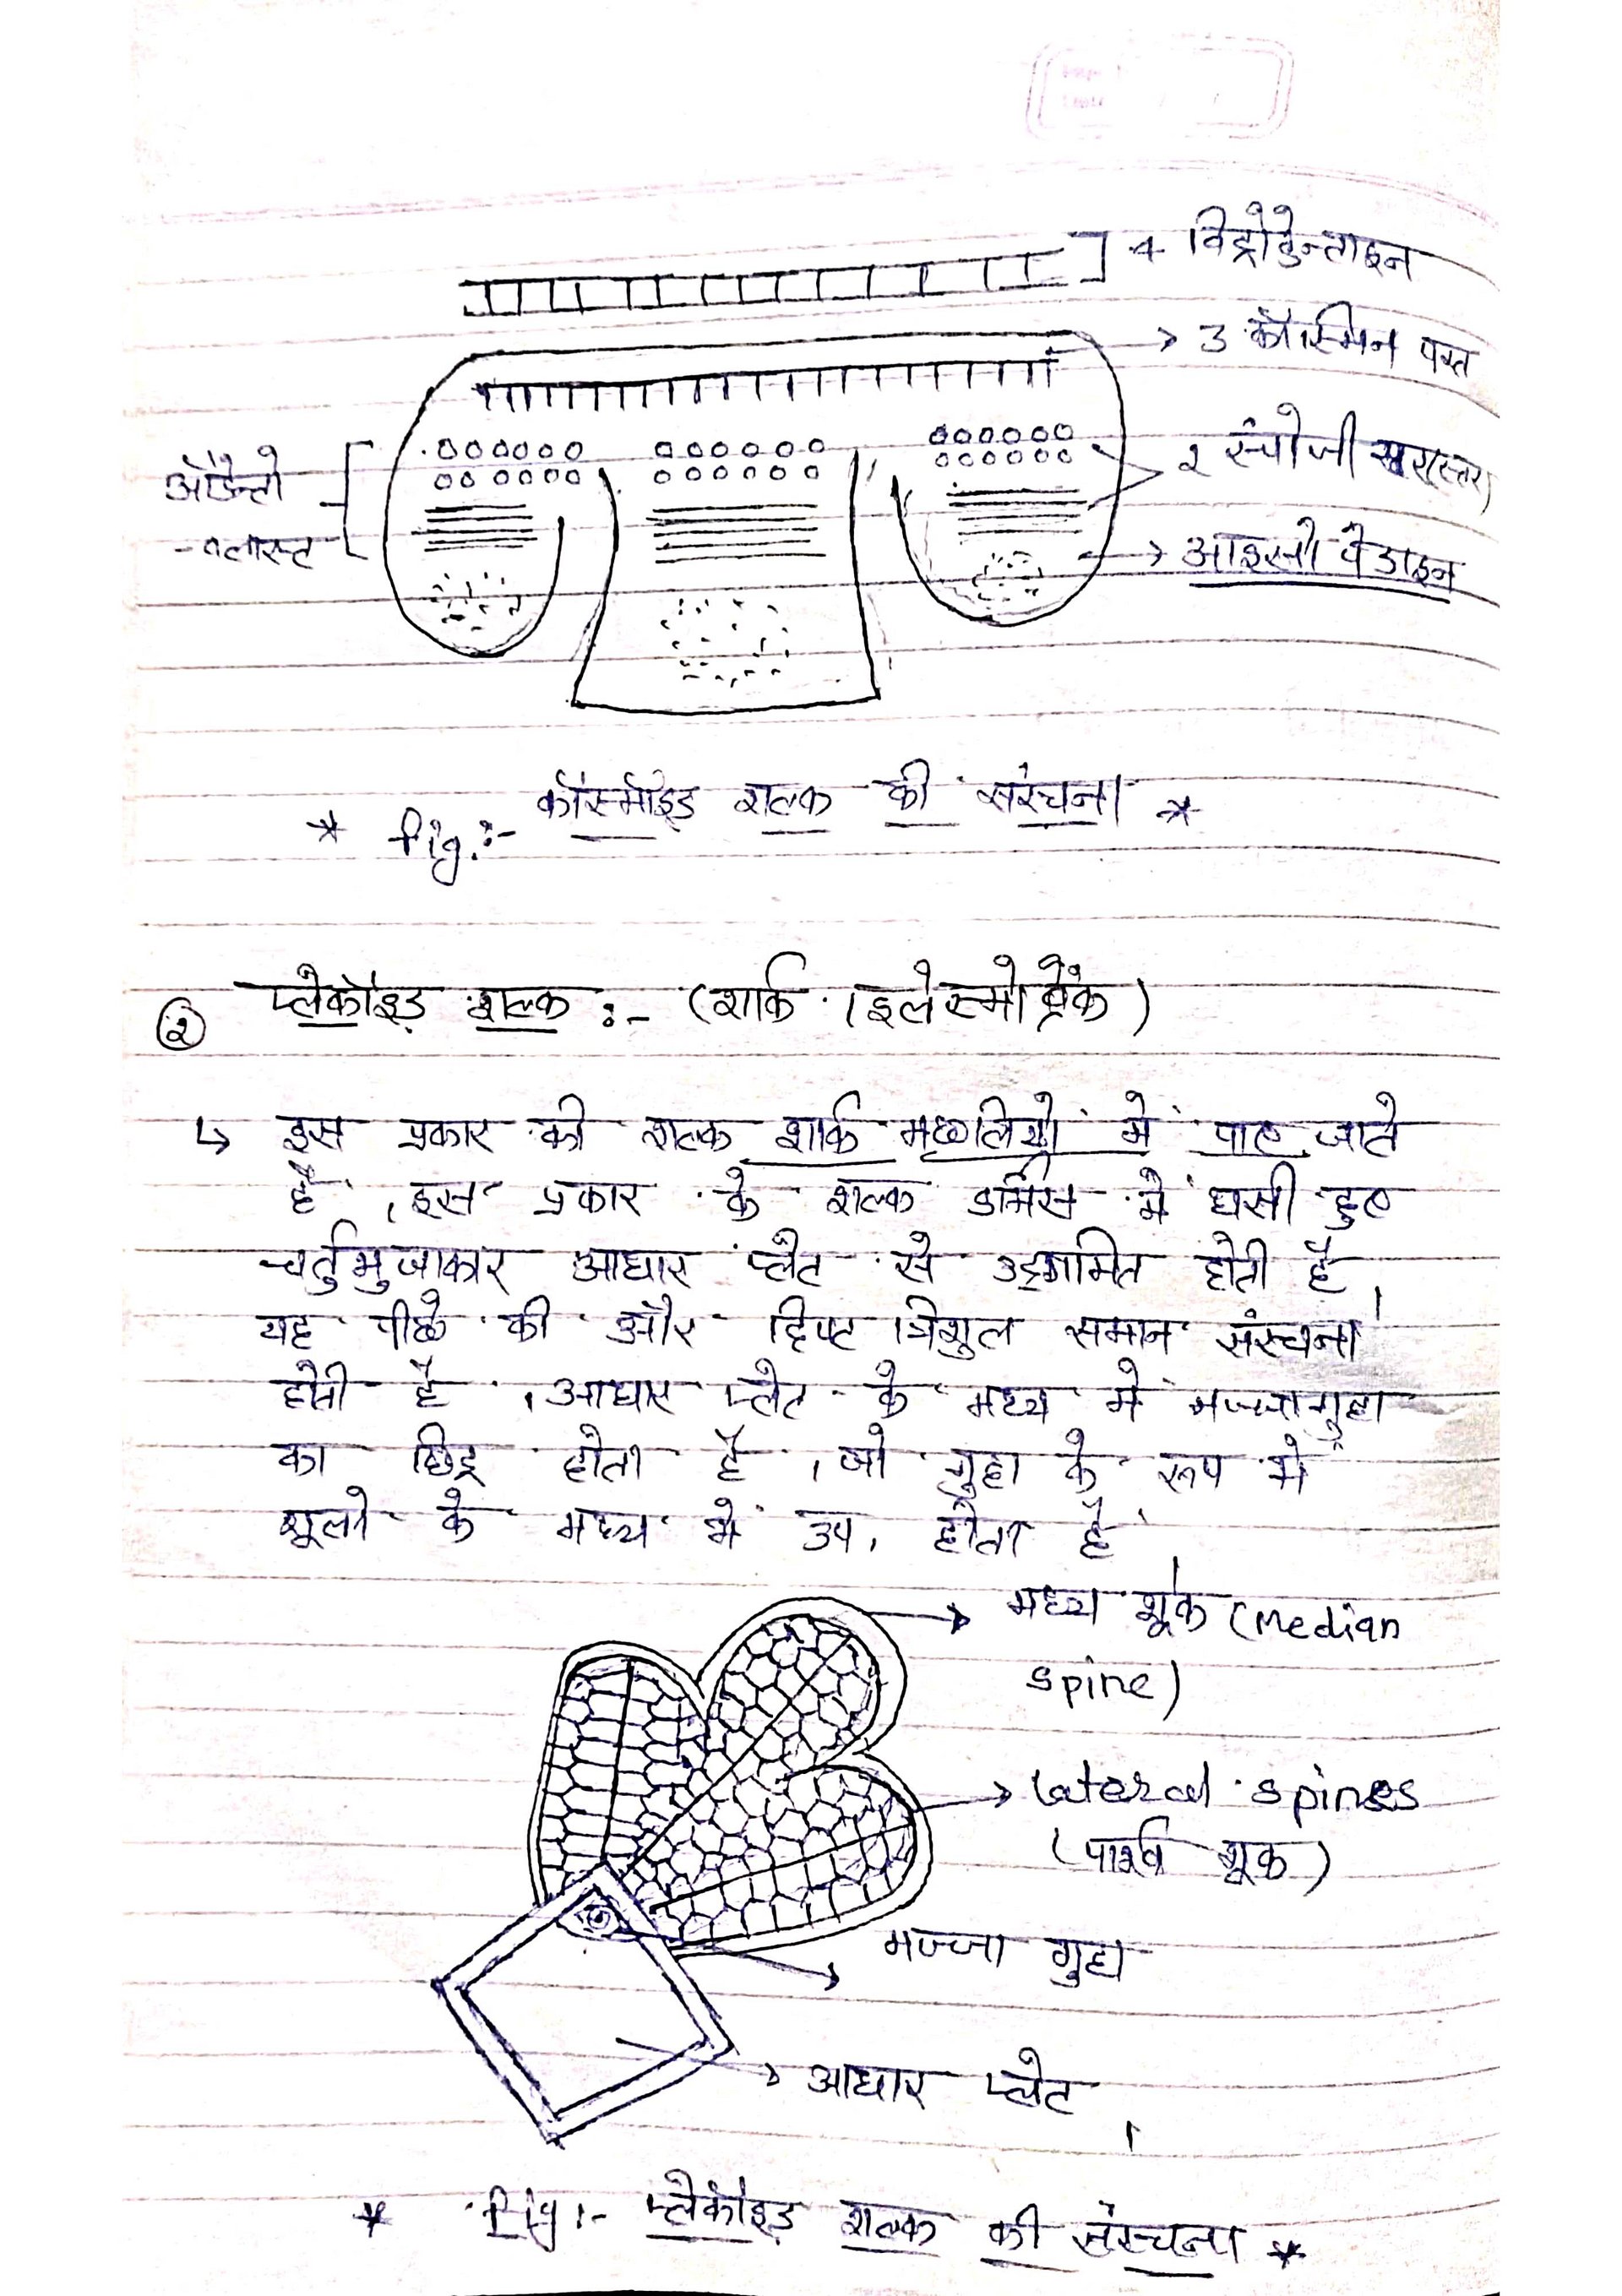 4 विट्रोडेन्टाइन
→ 3 कॉस्मिन परत
ऑडेन्टो
2 स्पंजी
- ब्लास्ट
→ आइसोपेडाइन
* fig.:- कॉस्मोइड शल्क की संरचना *
② प्लेकॉइड शल्क :- (शार्क । इलेस्मोब्रैंक)
↳ इस प्रकार की शल्क शार्क मछलियों में पाए जाते
है । इस प्रकार के शल्क डर्मिस में धसी हुए
चर्तुभुजाकार आधार प्लेट से उद्गमित होती है ।
यह पीछे की और त्रिशुल समान संरचना
होती है । आधार प्लेट के मध्य में मज्जागुहा
का छिद्र होता है , जो गुहा के रूप में
शूलो के मध्य में उप. होता है ।
→ मध्य शूक (Median
spine)
→ lateral spines
(पार्श्व शूक)
मज्जा गुहा
→ आधार प्लेट
* fig:- प्लेकॉइड शल्क की संरचना *